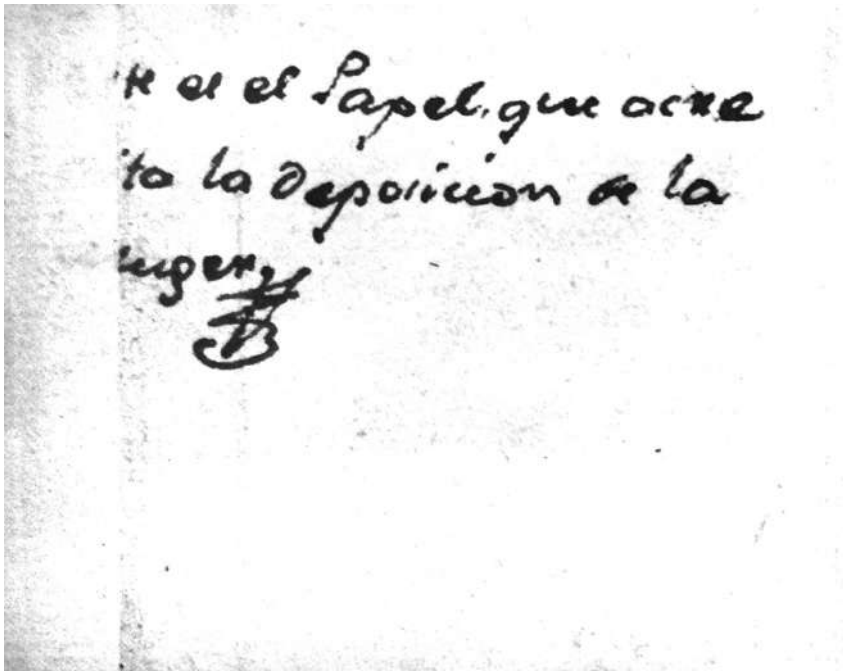 te es el Papel, que acre
ita la Deposicion de la
uger,